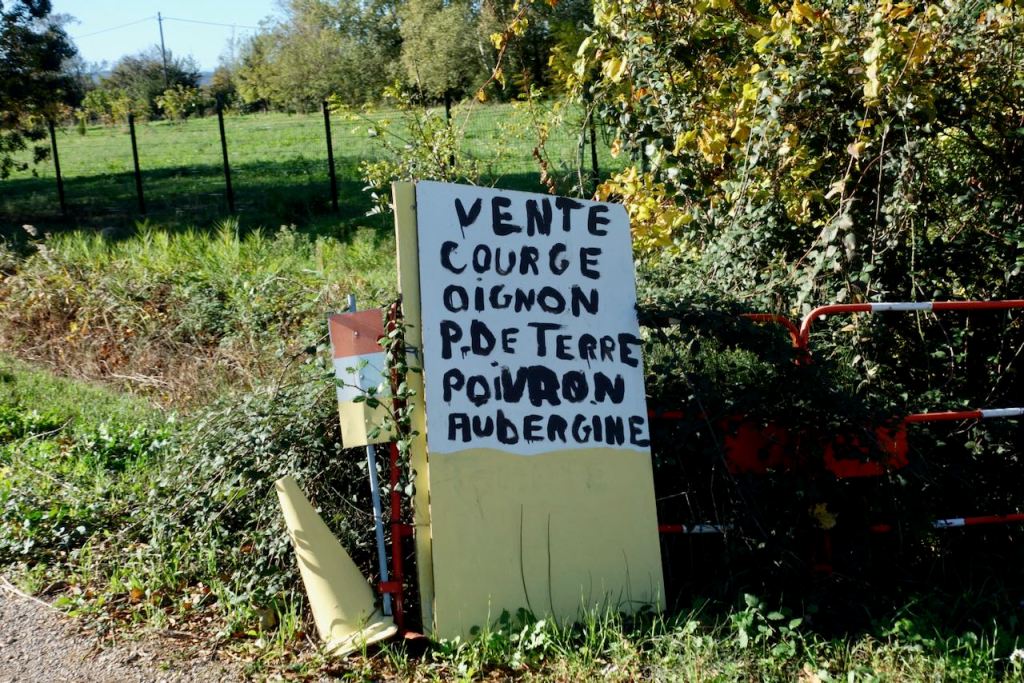 VENTE
COURGE
OIGNON
P.DE TERRE
POIVRON
AUBERGINE